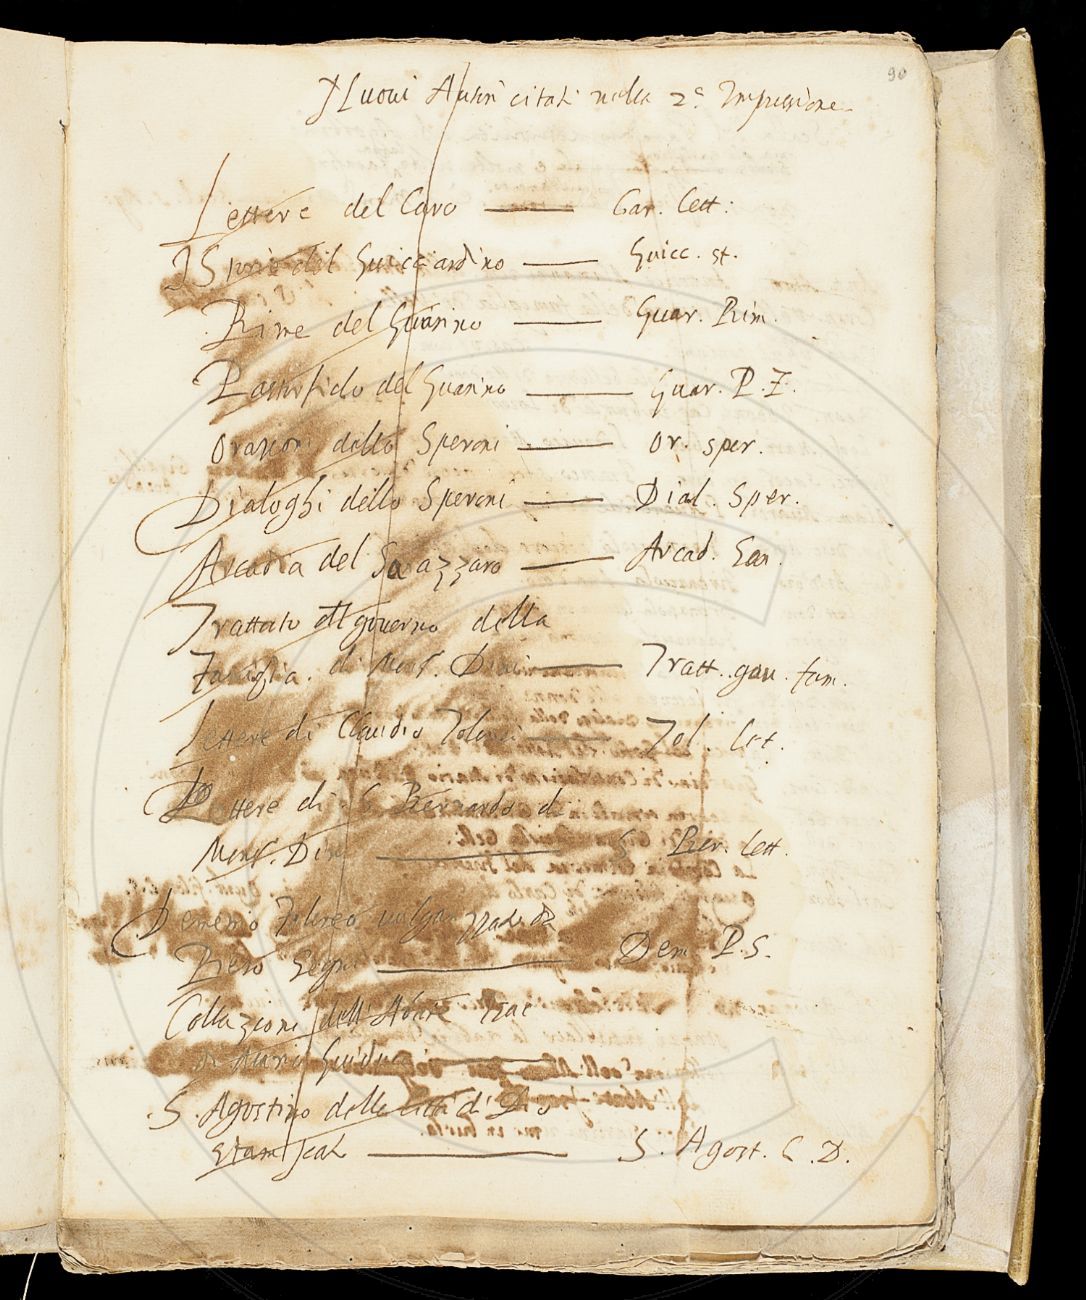 90
Nuovi Autori citati nella 2ª Impressione
Lettere del Caro — Car. lett:
Istorie del Guicciardino — Guicc. st.
Rime del Guarino — Guar. Rim.
Pastorfido del Guarino — Guar. P. F.
Orazioni dello Speroni — Or. sper.
Dialoghi dello Speroni — Dial. Sper.
Arcadia del Sanazzaro — Arcad. San.
Trattato governo della
Famiglia di Mons. Dini — Tratt. gov. fam.
Lettere di Claudio Tolomei — Tol. let.
Lettere di S. Bernardo di
Mons. Dini — S. Ber. lett.
Demetrio Falereo volgarizzato da
Piero Segni — Dem. P. S.
Collazioni dell'Abate Isac
S. Agostino della città di Dio
— S. Agost. C. D.